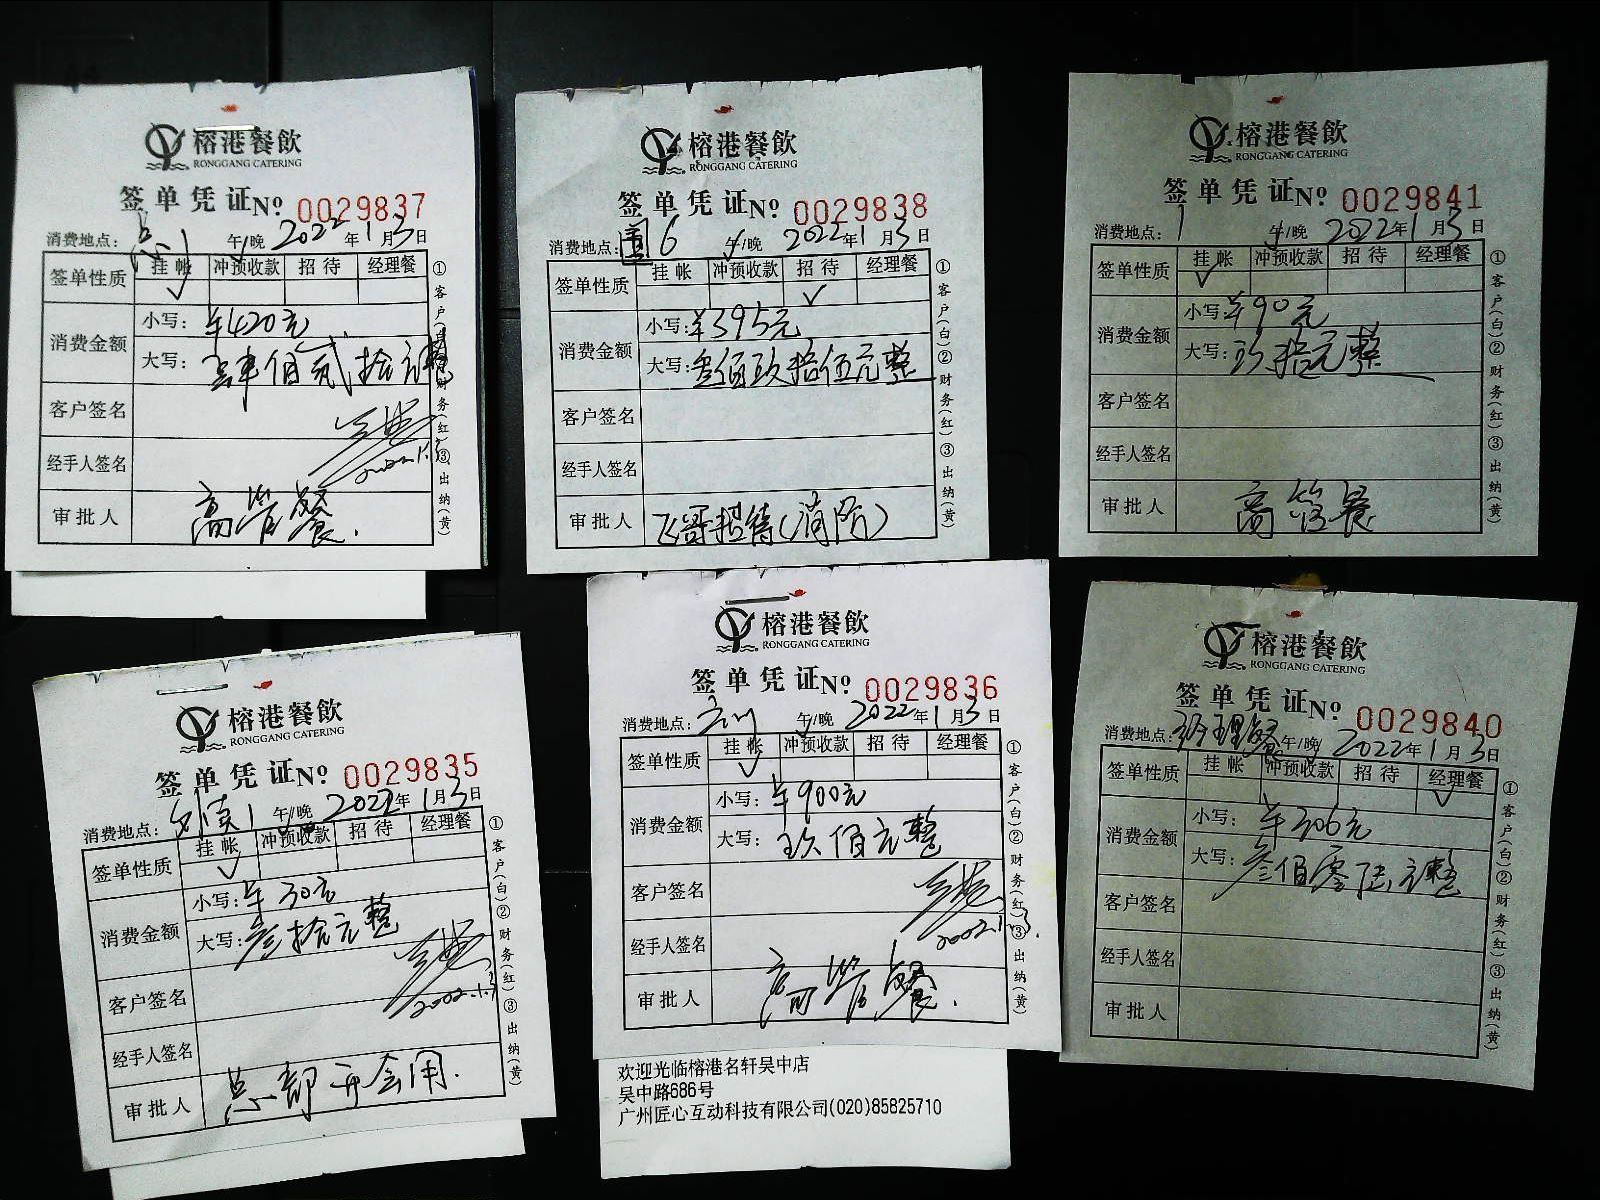 榕港餐飲
RONGGANG CATERING
签单凭证№ 0029837
消费地点： 午/晚 2022年1月3日
签单性质 挂帐 冲预收款 招待 经理餐
✓
消费金额 小写：¥420元
大写：肆佰贰拾元整
客户签名
经手人签名 2022.1.3
审批人 高管餐.
①客户(白)②财务(红)③出纳(黄)
榕港餐飲
RONGGANG CATERING
签单凭证№ 0029838
消费地点： 6 午/晚 2022年1月3日
签单性质 挂帐 冲预收款 招待 经理餐
✓
消费金额 小写：¥395元
大写：叁佰玖拾伍元整
客户签名
经手人签名
审批人 飞哥招待(消防)
①客户(白)②财务(红)③出纳(黄)
榕港餐飲
RONGGANG CATERING
签单凭证№ 0029841
消费地点： 1 午/晚 2022年1月3日
签单性质 挂帐 冲预收款 招待 经理餐
✓
消费金额 小写：¥90元
大写：玖拾元整
客户签名
经手人签名
审批人 高管餐
①客户(白)②财务(红)③出纳(黄)
榕港餐飲
RONGGANG CATERING
签单凭证№ 0029835
消费地点： 午/晚 2022年1月3日
签单性质 挂帐 冲预收款 招待 经理餐
✓
消费金额 小写：¥30元
大写：叁拾元整
客户签名 2022.1.3
经手人签名
审批人 总部开会用.
①客户(白)②财务(红)③出纳(黄)
榕港餐飲
RONGGANG CATERING
签单凭证№ 0029836
消费地点： 午/晚 2022年1月3日
签单性质 挂帐 冲预收款 招待 经理餐
✓
消费金额 小写：¥900元
大写：玖佰元整
客户签名
经手人签名 2022.1.3.
审批人 高管餐.
①客户(白)②财务(红)③出纳(黄)
欢迎光临榕港名轩吴中店
吴中路686号
广州匠心互动科技有限公司(020)85825710
榕港餐飲
RONGGANG CATERING
签单凭证№ 0029840
消费地点：经理餐 午/晚 2022年1月3日
签单性质 挂帐 冲预收款 招待 经理餐
✓
消费金额 小写：¥306元
大写：叁佰零陆元整
客户签名
经手人签名
审批人
①客户(白)②财务(红)③出纳(黄)